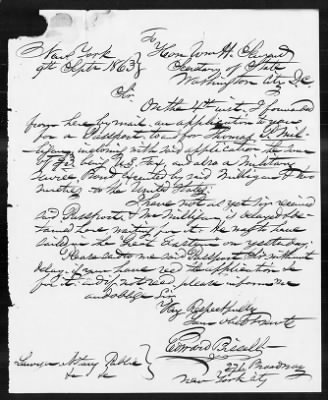 To
New York
9th Septr 1863
Hon. Wm H. Seward
Secretary of State
Washington City D.C.
Sir
On the 4th inst. I forwarded
from here by mail an application to you
for a Passport to & for Thomas Milligan, inclosing with said application the sum
of $3. being U.S. Tax, and also a Military
Service Bond executed by said Milligan & two
sureties to the United States.
I have not as yet received
said Passport & Mr Milligan is delayed
here waiting for it. He might have
in the "Great Eastern" on yesterday.
Please send me said Passport Sir without
delay, if you have recd the application
for it: and if not recd. please inform me
and oblige Sir
Very Respectfully
Your obdt Servt
Edward Bissell
Lawyer & Notary Public
&c &c
Broadway
New York City